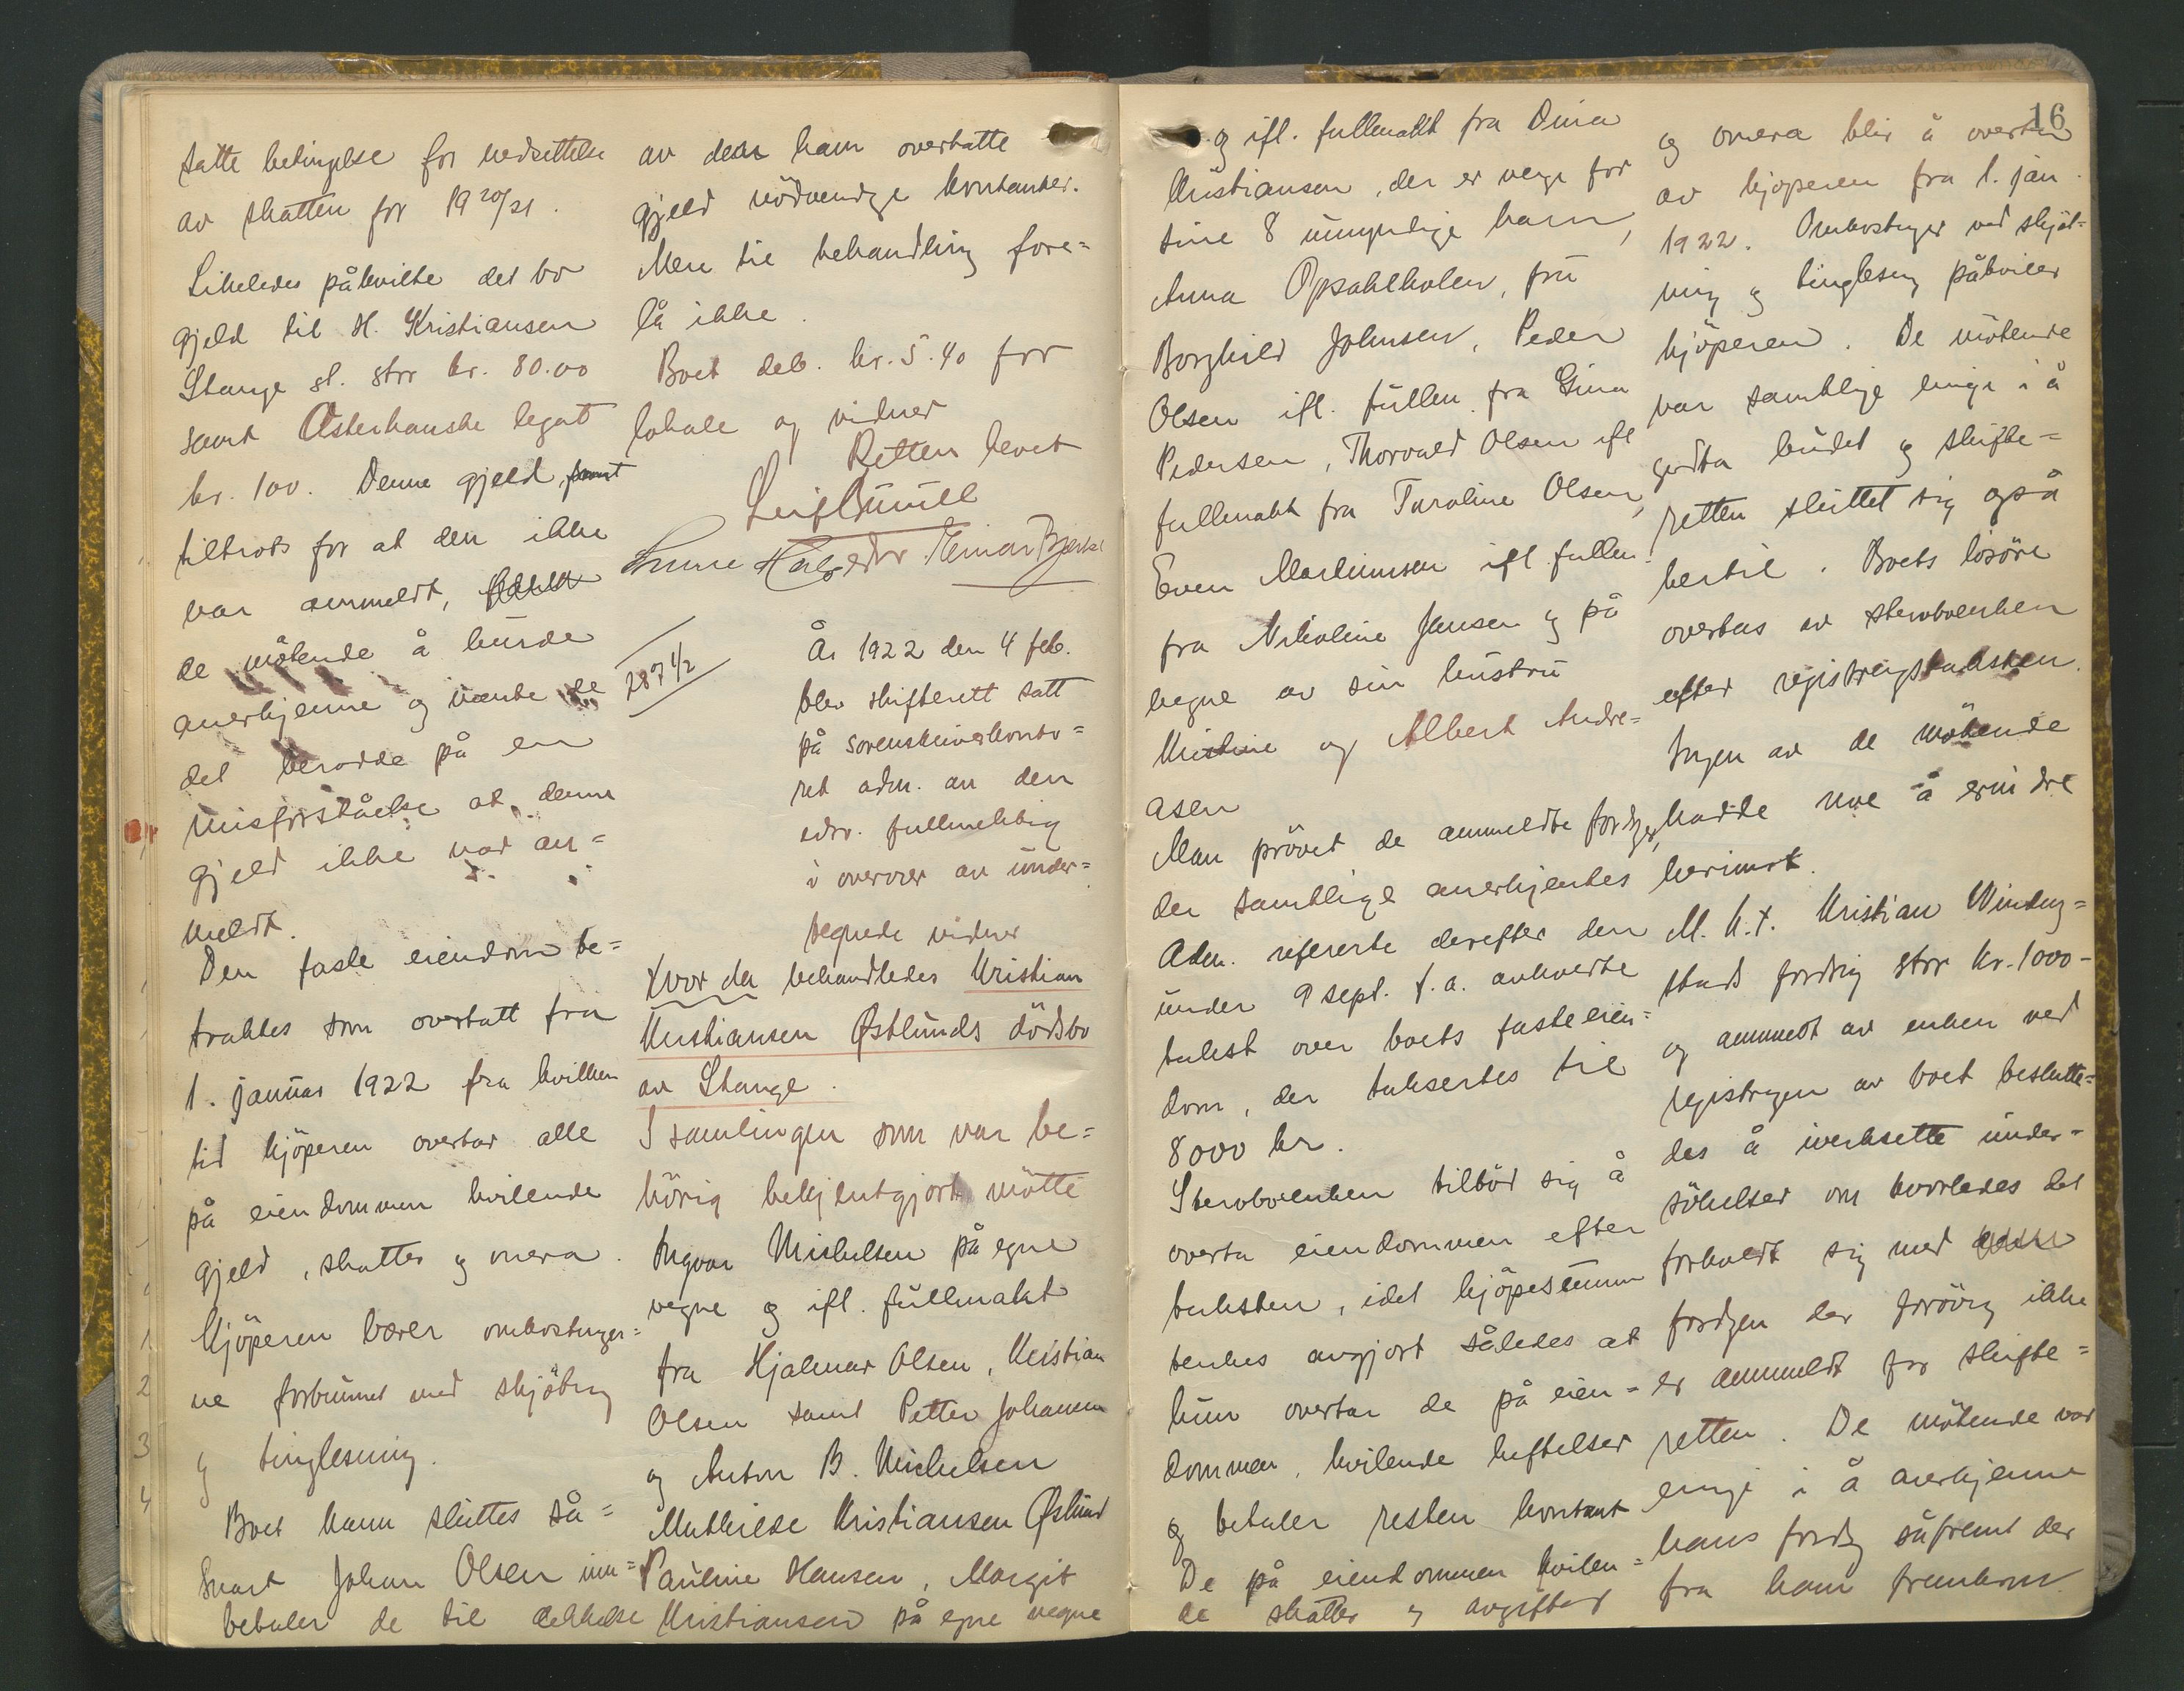 satte betingelse for nedsettelse
av skatten for 19 20/21.
Likeledes påhvilte det bo
gjeld til H. Kristiansen
Stange st. stor kr. 80.00
samt Asterhanske legat
kr. 100. Denne gjeld
tiltrods for at den ikke
var anmeldt,
de møtende å burde
anerkjenne og mente
det berodde på en
misforståelse at denne
gjeld ikke var an=
meldt.
Den faste eiendom be=
traktes som overtatt fra
1. januar 1922 fra hvilken
tid kjöperen overtar alle
på eiendommen hvilende
gjeld, skatter og onera.
Kjöperen bærer omkostninger=
ne forbundet med skjötning
og tinglesning.
Boet kann sluttes så=
snart Johan Olsen inn=
betaler de til dekkelse
av den ham overtatte
gjeld nödvendige kontanter.
Mere til behandling fore=
lå ikke.
Boet deb. kr. 5.40 for
lokale og vidner
Retten hevet
287 1/2
År 1922 den 4 feb.
blev skifterett satt
på sorenskriverkonto=
ret adm. av den
edsv. fullmektig
i overvær av under=
tegnede vidner
Hvor da behandledes Kristian
Kristiansen Østlunds dödsbo
av Stange.
I samlingen som var be=
hörig bekjentgjort mötte
Ingvar Mikkelsen på egne
vegne og ifl. fullmakt
fra Hjalmar Olsen, Kristian
Olsen samt Petter Johansen
og Anton B. Mikkelsen
Mathilde Kristiansen Østlund
Pauline Hansen, Margit
Kristiansen på egne vegne
16
og ifl. fullmakt fra Dina
Kristiansen, der er verge for
sine 8 umyndige barn,
Anna Opsahlholen, fru
Borghild Johnsen, Peder
Olsen ifl. fullm. fra Gina
Pedersen, Thorvald Olsen ifl
fullmakt fra Taroline Olsen,
Even Martinusen ifl. fullm.
fra Nikoline Jansen og på
vegne av sin hustru
Kristine og Albert Andre=
asen
Man prövet de anmeldte fordringer,
der samtlige anerkjentes
Adm. refererte derefter den
under 9 sept. f.a. avholdte
takst over boets faste eien=
dom, der takseredes til
8000 kr.
Stervboenken tilböd sig å
overta eiendommen efter
taksten, idet kjöpesummen
tenkes avgjort således at
hun overtar de på eien=
dommen hvilende heftelser
og betaler resten kontant
De på eiendommen hvilen=
de skatter og avgifter
og onera blir å overta
av kjöperen fra 1. jan.
1922. Omkostninger ved skjöt=
ning og tinglesning påhviler
kjöperen. De mötende
var samtlige enige i å
godta budet og skifte=
retten sluttet sig også
hertil. Boets lösöre
overtas av stervboenken
efter registreringstaksten.
Ingen av de mötende
hadde noe å erindre
herimot.
M. h. t. Kristian Winding=
stads fordring stor kr. 1000-
og anmeldt av enken ved
registreringen av boet beslutte=
des å iverksette under=
sökelser om hvorledes det
forholdt sig med
fordringen der forövrig ikke
er anmeldt for skifte=
retten. De mötende var
enige i å anerkjenne
hans fordring såfremt der
fra ham fremkom